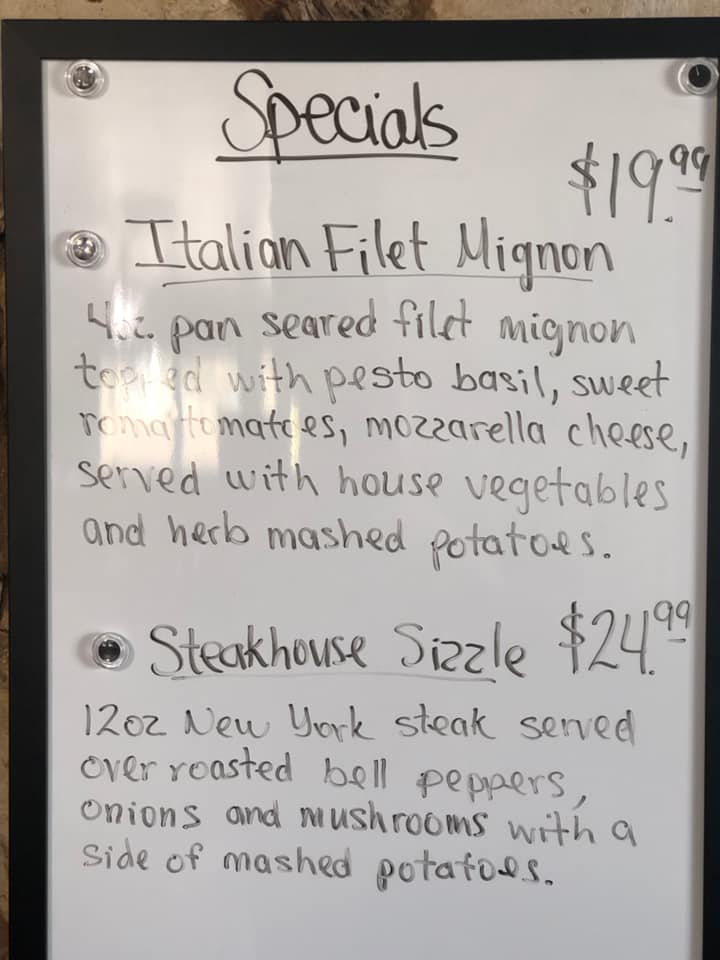 Specials
$19.99
Italian Filet Mignon
4oz. pan seared filet mignon
topped with pesto basil, sweet
roma tomatoes, mozzarella cheese,
served with house vegetables
and herb mashed potatoes.
Steakhouse Sizzle $24.99
12oz New York steak served
over roasted bell peppers,
onions and mushrooms with a
side of mashed potatoes.